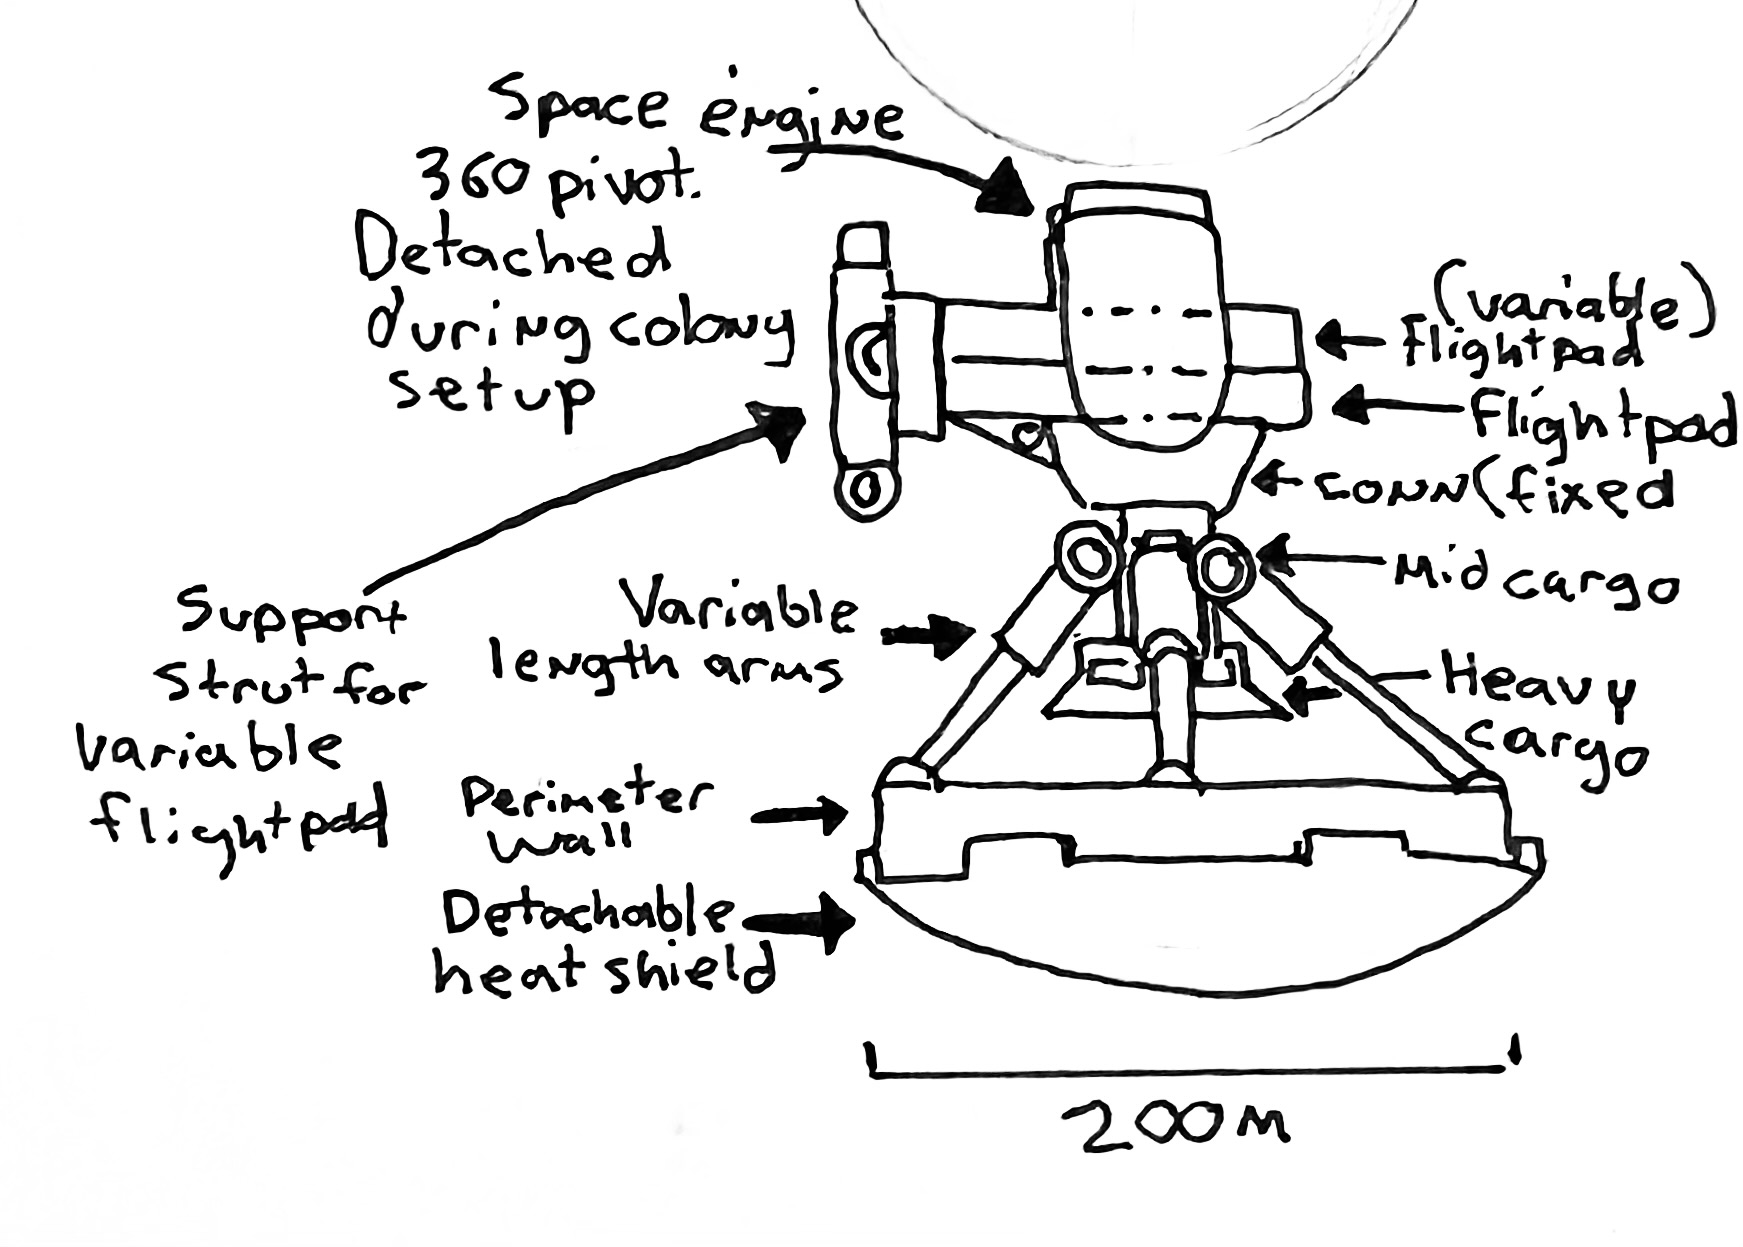 Space engine
360 pivot.
Detached
during colony
setup
(variable)
flightpad
flightpad
conn (fixed
Mid cargo
Heavy
cargo
Support
strut for
variable
flightpad
Variable
length arms
Perimeter
wall
Detachable
heat shield
200m